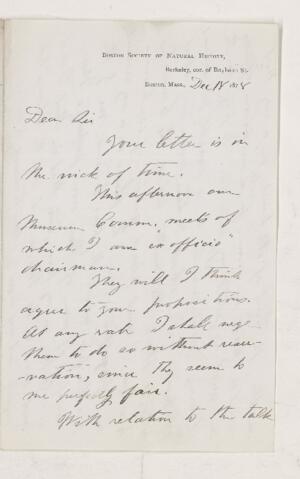 Boston Society of Natural History,
Berkeley, cor. of Boylston St.
Boston, Mass., Dec 18 1878
Dear Sir
Your letter is in
the nick of time.
This afternoon our
Museum Comm. meets of
which I am "ex officio"
chairman.
They will I think
agree to your propositions.
At any rate I shall urge
them to do so without reser-
vation, since they seem to
me perfectly fair.
With relation to the talk